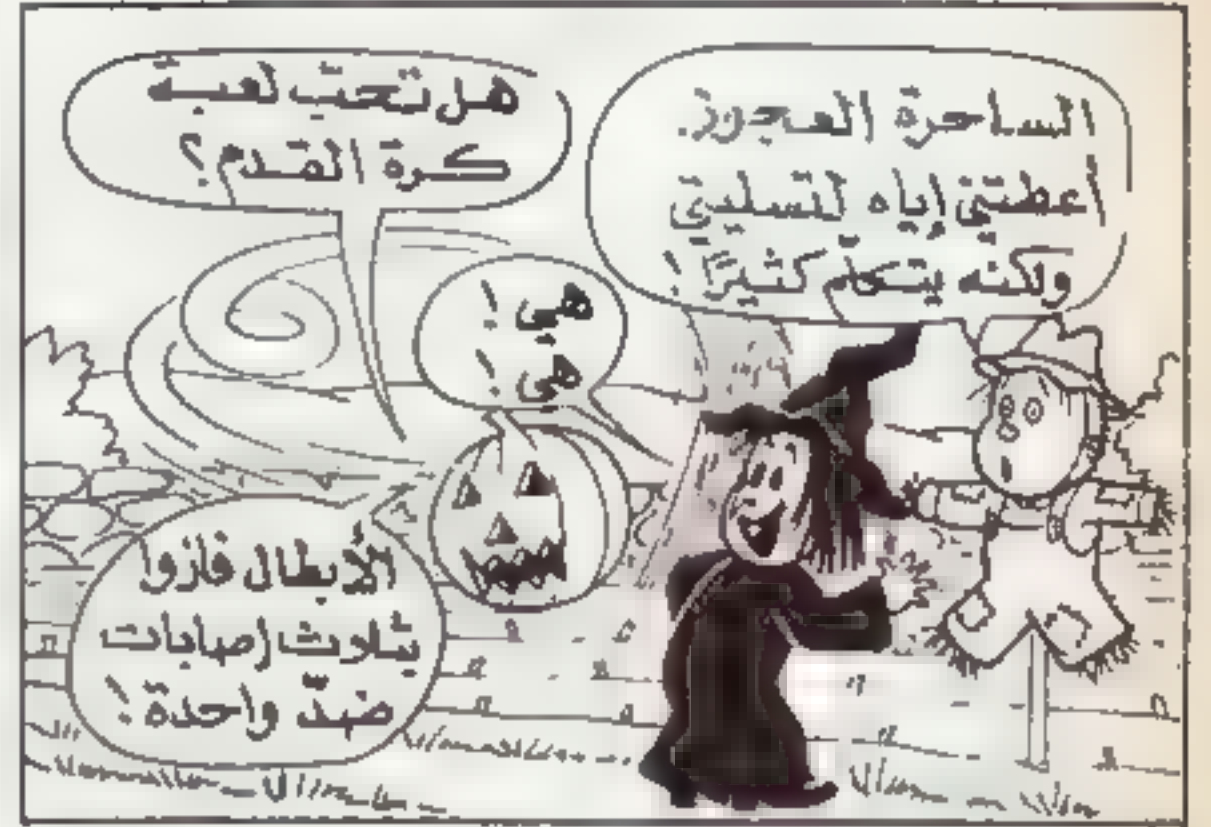 الساحرة العجوز.
أعطتني إياه لتسليتي
ولكنه يتكلّم كثيرًا!
هل تحبّ لعبة
كرة القدم؟
هي!
هي!
الأبطال فازوا
بثلاث إصابات
ضدّ واحدة!